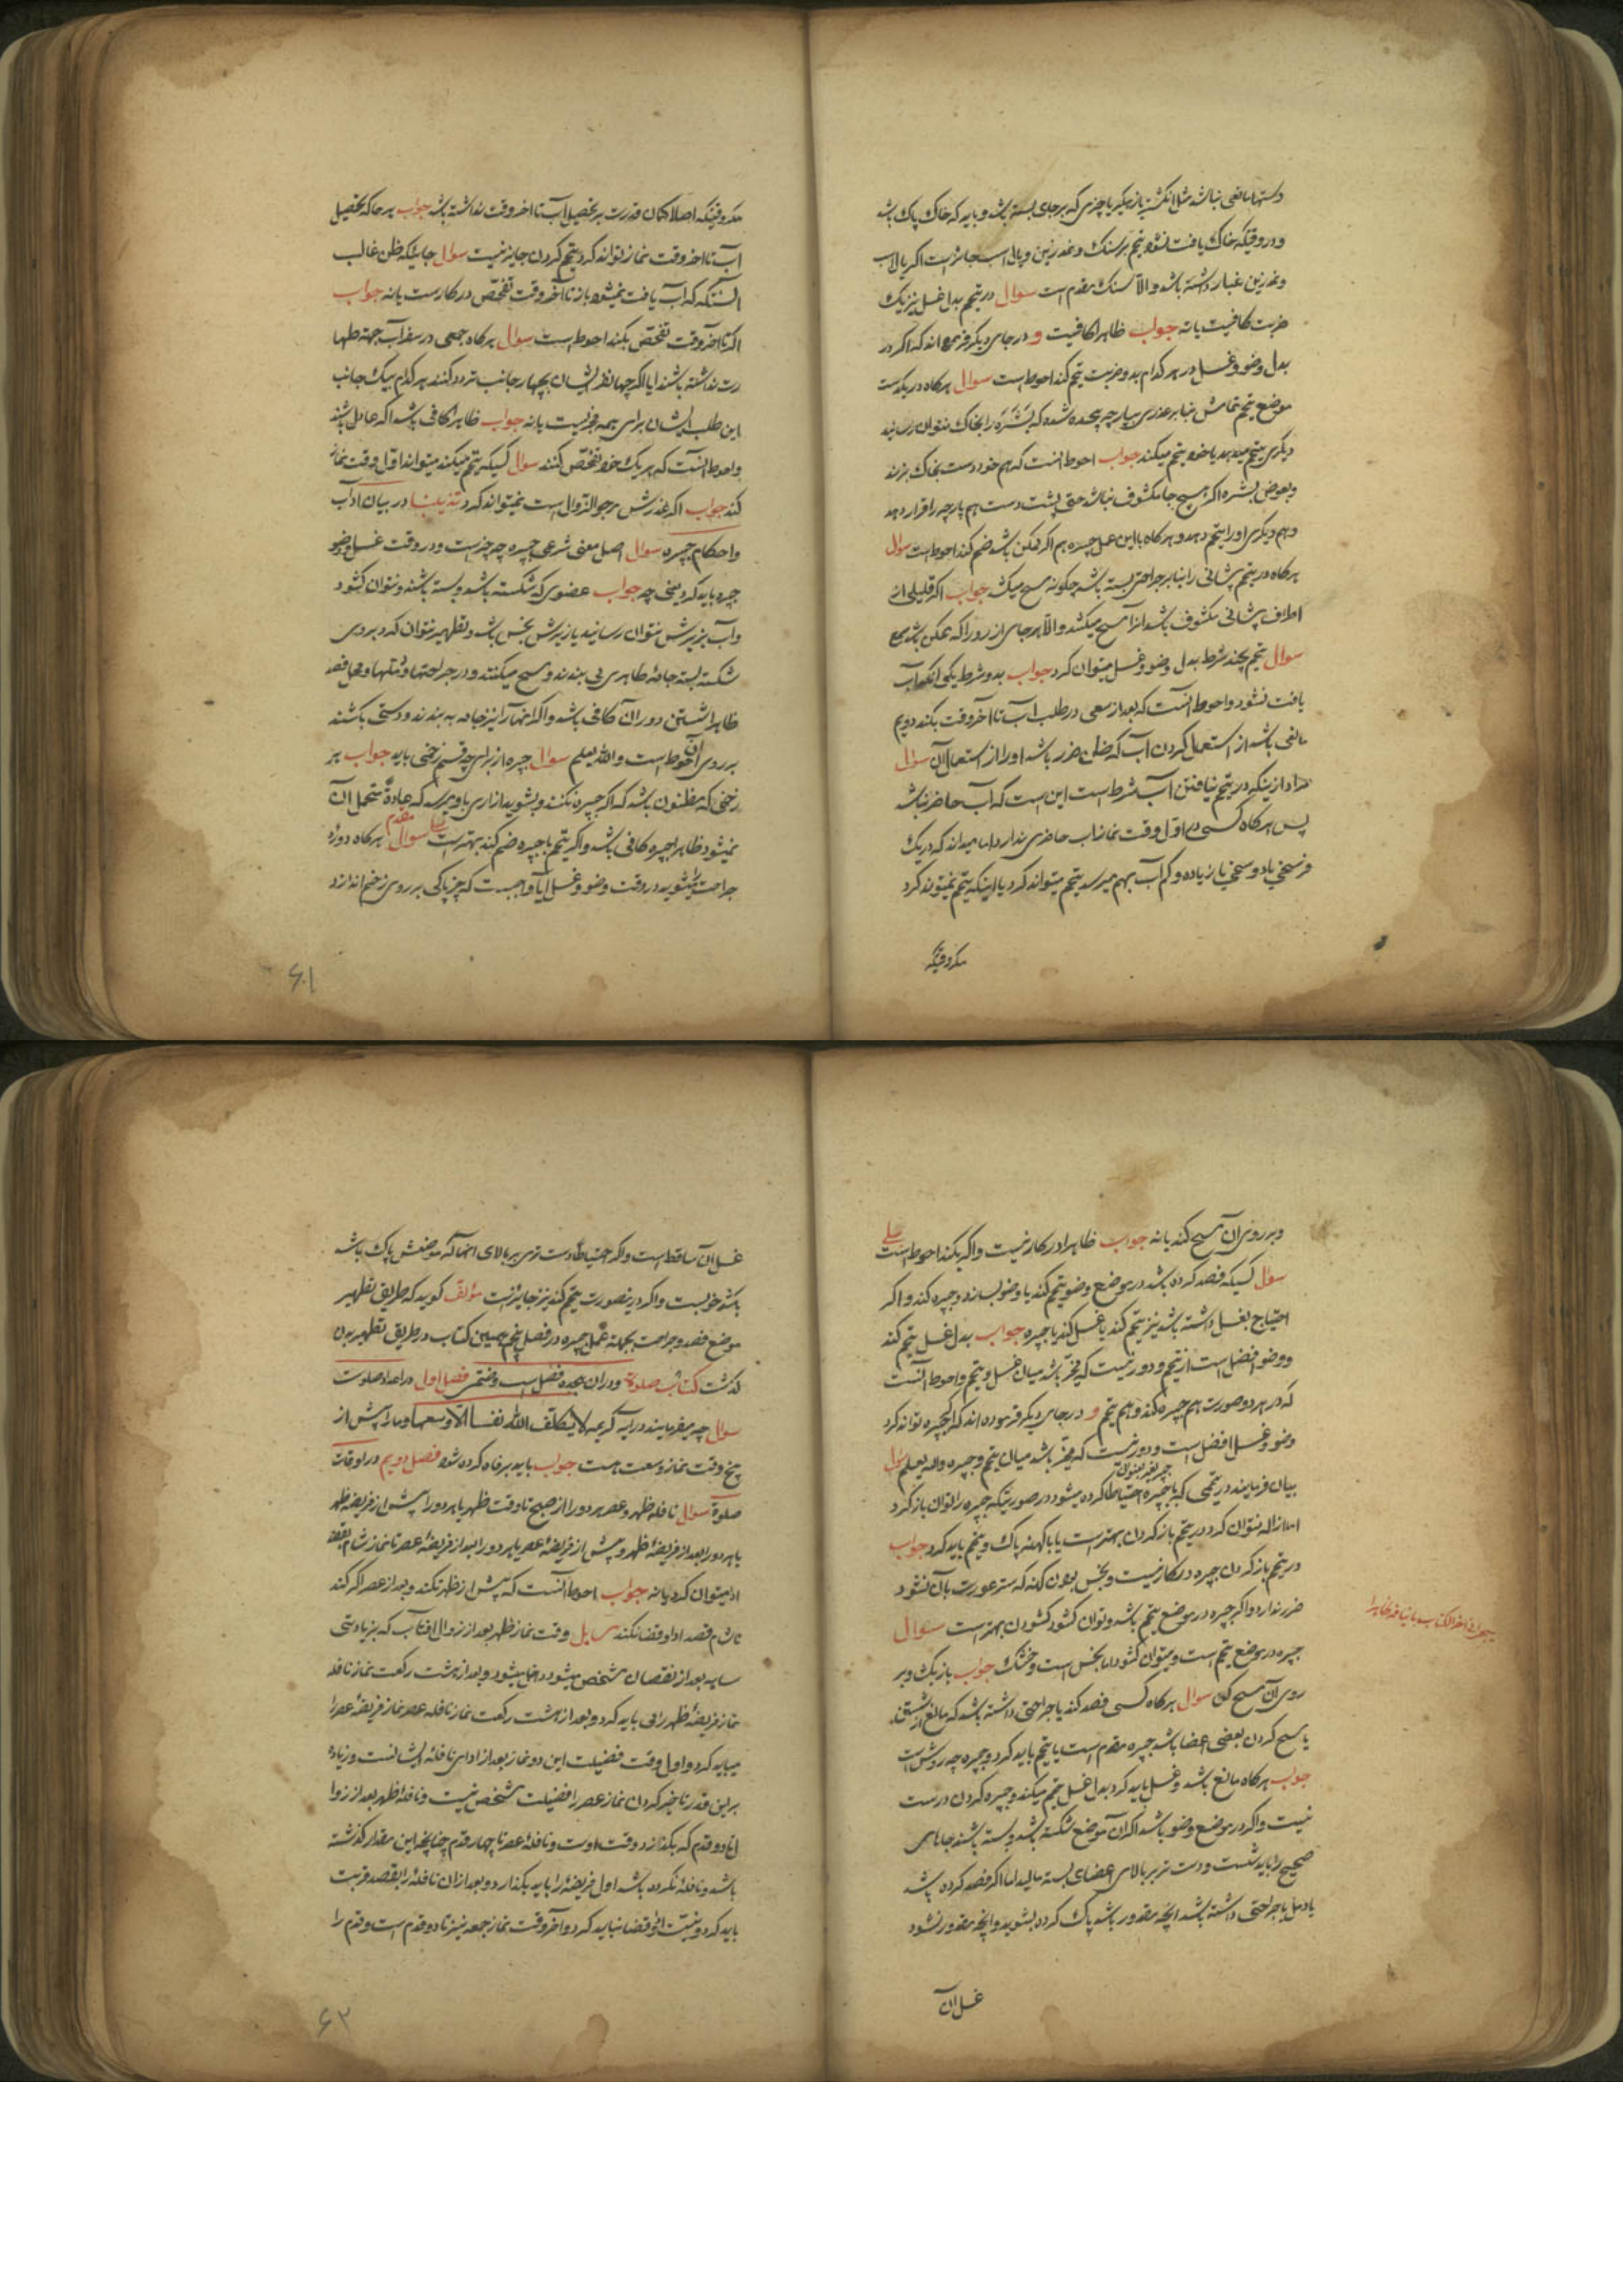 دستها مانعی نباشد مثل انگشتر یا زهگیر یا چیزی که بر جای بسته باشد و باید که خاک پاک باشد
و در وقتیکه خاک یافت نشود تیمم بر سنک و نمد زین و پالان اسب جایز است اگر پالان
و نمد زین غبار داشته باشد والا سنک مقدم است سوال در تیمم بدل غسل نیز یک
ضربت کافیست یا نه جواب ظاهرا کافیست و در جای دیگر فرموده اند که اگر در
بدل وضو و غسل در هر کدام بدو ضربت تیمم کند احوط است سوال هرگاه در یکدست
موضع تیمم تمامش بنا بر عذری بپارچه پیچیده شده که بشره را بخاک نتوان رسانید
دیگری تیمم میدهد یا خود تیمم میکند جواب احوط انست که هم خود دست بخاک بزند
و بعوض بشره اگر هیچ جا مکشوف نباشد حتی پشت دست هم پارچه را قرار دهد
و هم دیگری او را تیمم دهد و هرگاه با این عمل جبیره هم اگر ممکن باشد ضم کند احوط است سوال
هرگاه در تیمم پیشانی را بنا بر جراحتی بسته باشد چگونه مسح میکشد جواب اگر قلیلی از
اطراف پیشانی مکشوف باشد انرا مسح میکشد والا هر جای از رو را که ممکن باشد مسح
سوال تیمم بچند شرط بدل وضو و غسل میتوان کرد جواب بدو شرط یکی انکه آب
یافت نشود و احوط انست که بعد از سعی در طلب آب تا آخر وقت بکند دویم
مانعی باشد از استعمال کردن آب که ظن ضرر باشد او را از استعمال آن سوال
مراد از اینکه در تیمم نیافتن آب شرط است این است که آب حاضر نباشد
پس هرگاه کسی در اول وقت نماز آب حاضری ندارد اما میداند که در یک
فرسخی یا دو سخی یا زیاده و کم آب بهم میرسد تیمم میتواند کرد یا اینکه تیمم نمیتوند کرد
مکر وقتیکه
مکر وقتیکه اصلا گمان قدرت بر تحصیل آب تا اخر وقت نداشته باشد جواب هرجا که تحصیل
آب تا اخر وقت نماز تواند کرد تیمم کردن جایز نیست سوال جائیکه ظن غالب
انستکه که آب یافت نمیشود باز تا آخر وقت تفحص در کار است یا نه جواب
اگر تا آخر وقت تفحص بکند احوط است سوال هرگاه جمعی در سفر آب جهة طها
رت نداشته باشند ایا اگر چهار نفر ایشان بچهار جانب تردد کنند هر کدام بیک جانب
این طلب ایشان برای همه مجزیست یا نه جواب ظاهرا کافی باشد اگر عادل باشند
و احوط انست که هر یک خود تفحص کنند سوال کسیکه تیمم میکند میتواند اول وقت نماز
کند جواب اگر عذرش مرجو الزوال است نمیتواند کرد تذییلٌ در بیان آداب
و احکام جبیره سوال اصل معنی شرعی جبیره چه چیز است و در وقت غسل و وضو
جبیره باید کرد یعنی چه جواب عضوی که شکسته باشد و بسته باشند و نتوان گشود
و آب بزیرش نتوان رسانید یا زیرش نجس باشد و تطهیر نتوان کرد بر روی
شکسته بسته جامهٔ طاهری می بندند و مسح میکنند و در جراحتها و دملها و محل فصد
ظاهرا شستن دور آن کافی باشد و اگر انها را نیز جامه به بندند و دستی بکشند
بر روی آن احوط است والله یعلم سوال جبیره از برای چه قسم زخمی باید جواب بر
زخمی که مظنون باشد که اگر جبیره نکنند و بشویند ازاری باو میرسد که عادةً متحمل آن
نمیشود ظاهرا جبیره کافی باشد و اگر تیمم با جبیره ضم کند بهتر است مقدم علی سوال هرگاه دورهٔ
جراحت را بشوید در وقت وضو و غسل ایا واجبست که چیز پاکی بر روی زخم اندازد
۶۱
و بر روی آن مسح کند یا نه جواب ظاهرا در کار نیست و اگر بکند احوط است علی
سؤال کسیکه فصد کرده باشد در موضع وضو تیمم کند یا وضو بسازد و جبیره کند و اگر
احتیاج بغسل داشته باشد نیز تیمم کند یا غسل کند با جبیره جواب بدل غسل تیمم کند
و وضو افضل است از تیمم و دور نیست که مخیر باشد میان غسل و تیمم و احوط آنست
که در هر دو صورت هم جبیره کند و هم تیمم و در جای دیگر فرموده اند که اگر جبیره تواند کرد
وضو و غسل افضل است و دور نیست که مخیر باشد میان تیمم و جبیره والله یعلم سؤال
بیان فرمایند در تیممی که با جبیره احتیاطا کرده میشود در صورتیکه جبیره را توان باز کرد
اما ازاله نتوان کرد در تیمم باز کردن بهتر است یا با کهنه پاک و تیمم باید کرد جواب
در تیمم باز کردن جبیره در کار نیست و نجس بودن کهنه که ستر عورت بآن نشود
ضرر ندارد و اگر جبیره در موضع تیمم باشد و توان گشود گشودن بهتر است سوال
جبیره در موضع تیمم است و میتوان گشود اما نجس است و خشک جواب باز یک و بر
روی آن مسح کن سوال هرگاه کسی فصد کند یا جراحتی داشته باشد که مانع از شستن
یا مسح کردن بعضی اعضا باشد جبیره مقدم است یا تیمم باید کرد و جبیره چه روش است
جواب هرگاه مانع باشد و غسل باید کرد بدل غسل تیمم میکند و جبیره کردن درست
نیست و اگر در موضع وضو باشد اگر آن موضع شکسته باشد و بسته باشند جاهای
صحیح را باید شست و دست تر بر بالای اعضای بسته مالید اما اگر فصد کرده باشد
یا دمل یا جراحتی داشته باشد انچه مقدور باشد پاک کرده بشوید و انچه مقدور نشود
غسل آن
غسل آن ساقط است و اگر احتیاطا دست تری بر بالای انها که موضعش پاک باشد
بکشد خوبست و اگر درینصورت تیمم کند نیز جایز است مؤلف گوید که طریق تطهیر
موضع فصد و جراحت بجهة عمل جبیره در فصل پنجم همین کتاب در طریق تطهیر بدن
گذشت کتاب صلوة و در ان هجده فصل است و ختمی فصل اول در اعداد صلوت
سوال چه میفرمایند در آیه کریمه لا یکلف الله نفسا الا وسعها و ما را پیش از
پنج وقت نماز وسعت هست جواب باید بر فاه کرده شود فصل دویم در اوقات
صلوة سوال نافله ظهر و عصر هر دو را از صبح تا وقت ظهر یا هر دو را پیش از فریضه ظهر
یا هر دو را بعد از فریضهٔ ظهر و پیش از فریضهٔ عصر یا هر دو را بعد از فریضهٔ عصر تا نماز شام بقصد
ادا میتوان کرد یا نه جواب احوط آنست که پیش از ظهر نکند و بعد از عصر اگر کند
تا شام قصد ادا و قضا نکند وقت نماز ظهر بعد از زوال افتاب که بزیادتی
سایه بعد از نقصان مشخص میشود داخل میشود و بعد از هشت رکعت نماز نافله
نماز فریضهٔ ظهر را می باید کرد و بعد از هشت رکعت نماز نافله عصر نماز فریضهٔ عصر را
میباید کرد و اول وقت فضیلت این دو نماز بعد از ادای نافلهٔ ایشانست و زیاده
بر این قدر تاخیر کردن نماز عصر را فضیلت مشخص نیست و نافلهٔ ظهر بعد از زوا
ل تا دو قدم که بگذارد وقت اوست و نافلهٔ عصر تا چهار قدم چنانچه این مقدار گذشته
باشد و نافله نکرده باشد اول فریضه را باید بگذارد و بعد از ان نافله را بقصد قربت
باید کرد و نیت ادا و قضا نباید کرد و آخر وقت نماز جمعه نیز تا دو قدم است و قدم را
۶۲